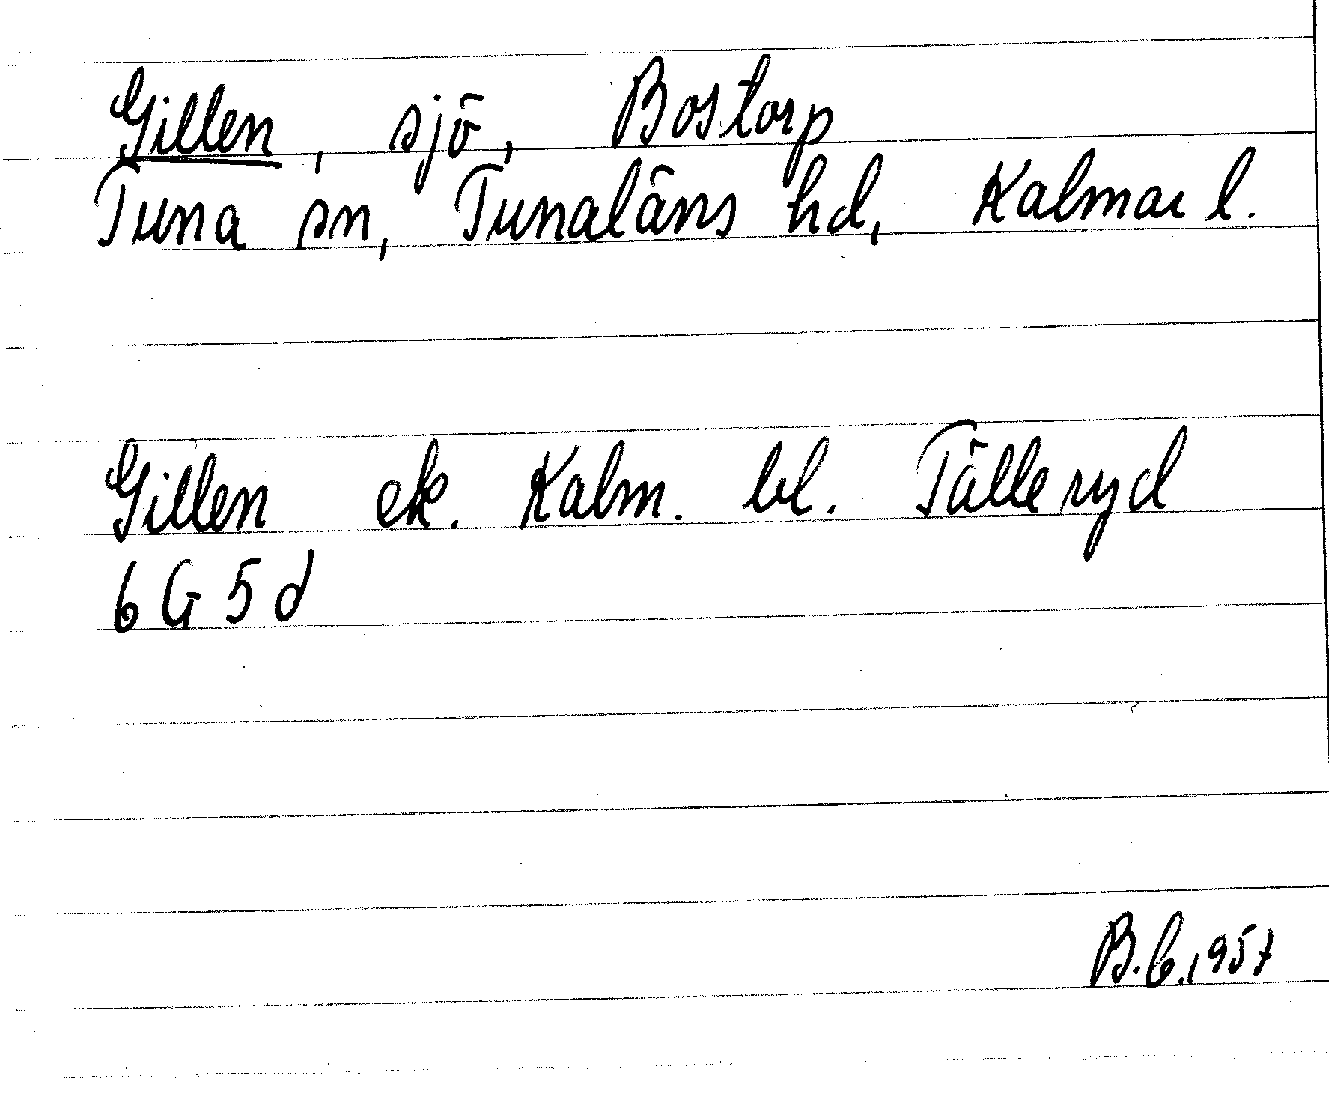 Gillen, sjö, Bostorp
Tuna sn, Tunaläns hd, Kalmar l.
Gillen ek. Kalm. bl. Tälleryd
6 G 5 d
B.C. 1957